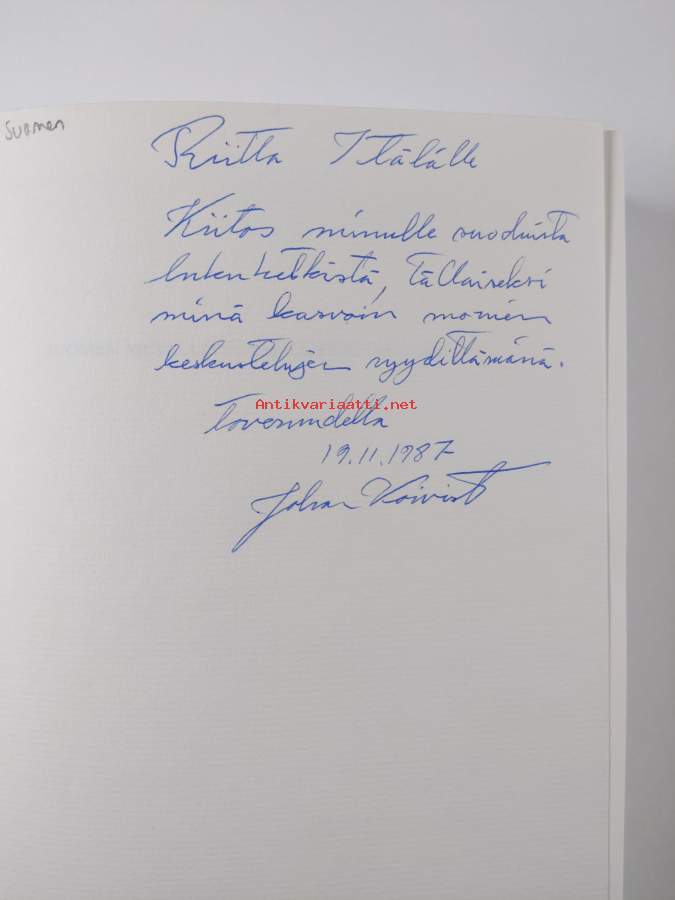 Suomen
Riitta Itälälle
Kiitos minulle suoduista
lukuhetkistä, Tällaiseksi
minä kasvoin monien
keskustelujen ryydittämänä.
Antikvariaatti.net
Toveruudella
19.11.1987
Johan Koivist